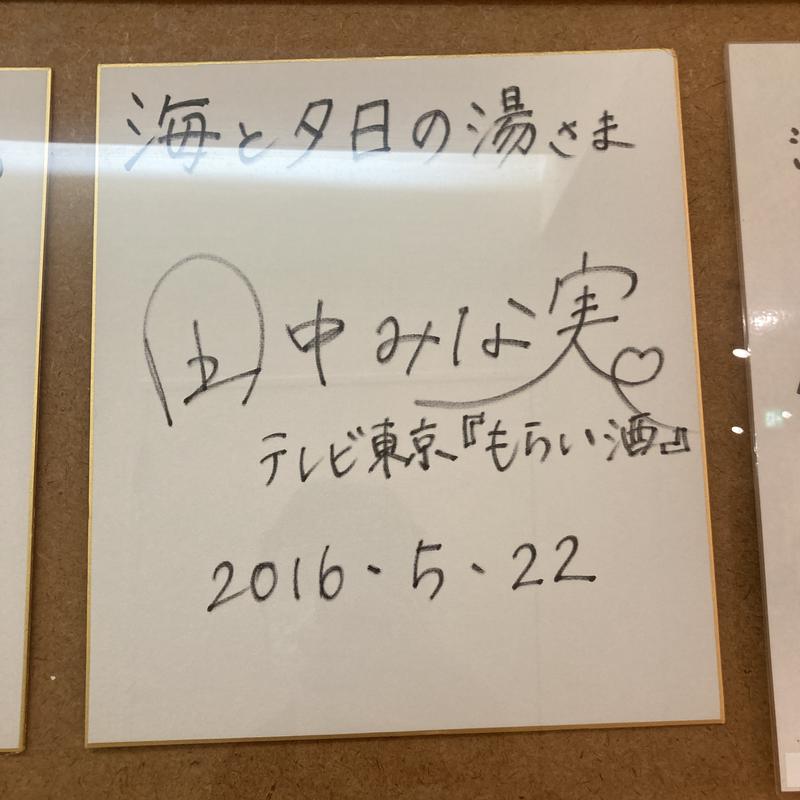 海と夕日の湯さま
田中みな実
テレビ東京『もらい酒』
2016・5・22